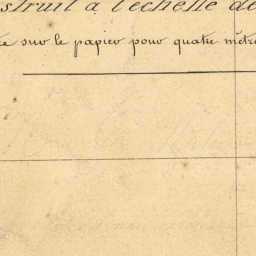 struit à l'échelle de
sur le papier pour quatre mètre